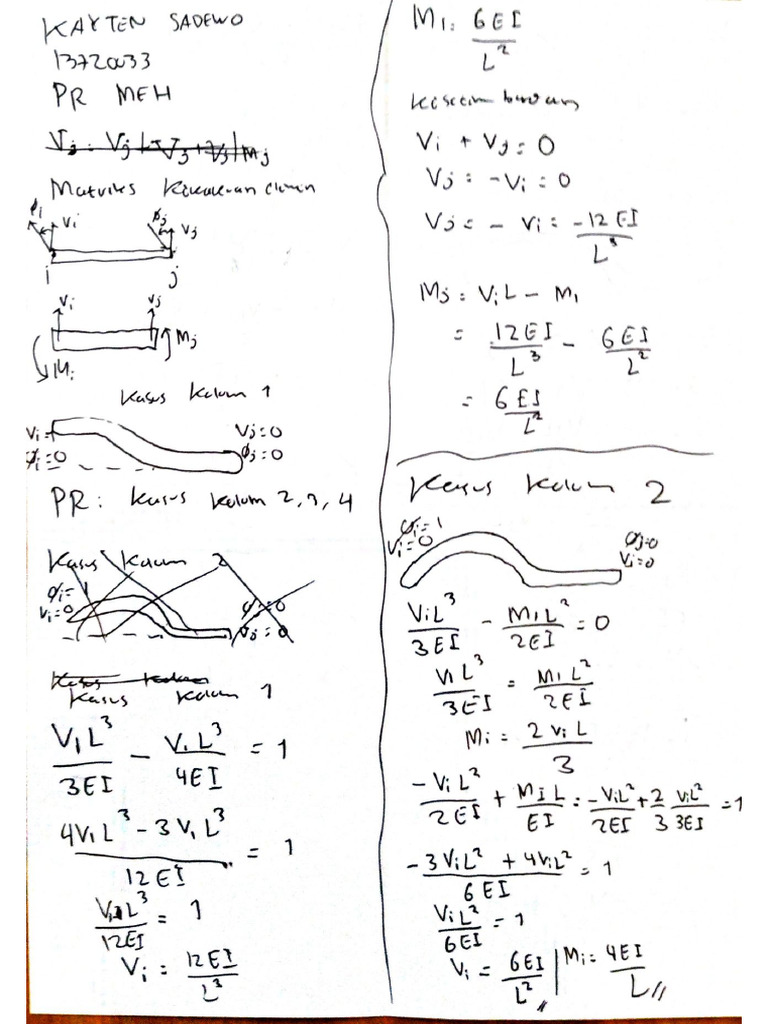 KAYTEN SADEWO
13720033
PR MEH
Vj = Vj
Mj
Matriks Kekakuan elemen
ϕi Vi ϕj Vj
i j
Vi Vj
Mj
Mi
Kasus Kolom 1
Vi= Vj=0
ϕi=0 ϕj=0
PR: Kasus Kolom 2, 3, 4
Kasus Kolom 2
ϕi=1
Vi=0 ϕj=0
Vj=0
Kasus Kolom
Kasus Kolom 1
V1L³/3EI - V1L³/4EI = 1
4V1L³ - 3V1L³/12EI = 1
V1L³/12EI = 1
Vi = 12EI/L³
M1 = 6EI/L²
Vi + Vj = 0
Vj = -Vi = 0
Vj = - Vi = -12EI/L³
Mj = ViL - M1
= 12EI/L³ - 6EI/L²
= 6EI/L²
Kasus Kolom 2
ϕi=1 ϕj=0
Vi=0 Vj=0
ViL³/3EI - M1L²/2EI = 0
V1L³/3EI = M1L²/2EI
Mi = 2ViL/3
-ViL²/2EI + MIL/EI = -ViL²/2EI + 2/3 ViL²/3EI = 1
-3ViL² + 4ViL²/6EI = 1
ViL²/6EI = 1
Vi = 6EI/L² | Mi = 4EI/L